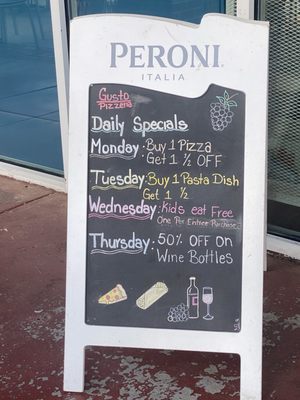 PERONI
ITALIA
Gusto
Pizzeria
Daily Specials
Monday: Buy 1 Pizza
Get 1 ½ OFF
Tuesday: Buy 1 Pasta Dish
Get 1 ½
Wednesday: Kids eat Free
1 Per Entree Purchase
Thursday: 50% OFF on
Wine Bottles